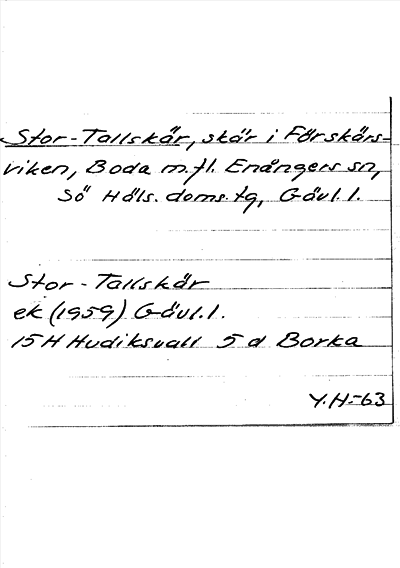 Stor-Tallskär, skär i Förskärs-
viken, Boda m.fl. Enångers sn,
Sö Häls. doms.tg, Gävl.l.
Stor-Tallskär
ek (1959) Gävl.l.
15 H Hudiksvall 5 d Borka
Y.H.-63